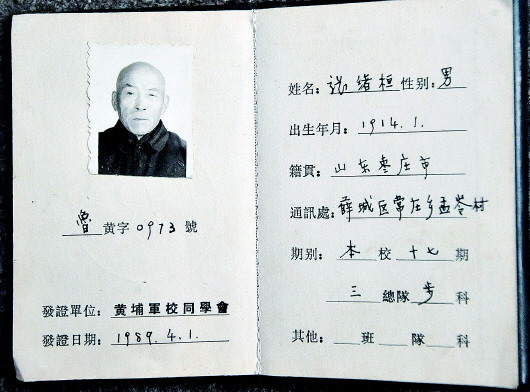 魯 黄字 0973 號
發證單位: 黄埔軍校同學會
發證日期: 1989.4.1.
姓名: 张绪桓 性别: 男
出生年月: 1914.1.
籍貫: 山东枣庄市
通訊處: 薛城区常庄乡孟岺村
期别: 本 校 十七 期
三 總隊 步 科
其他: 班 隊 科